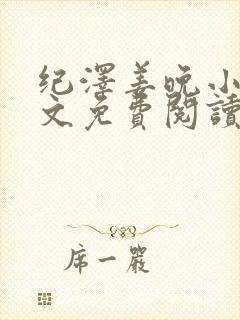 纪澤姜晚小
文免費閱讀
席一嚴